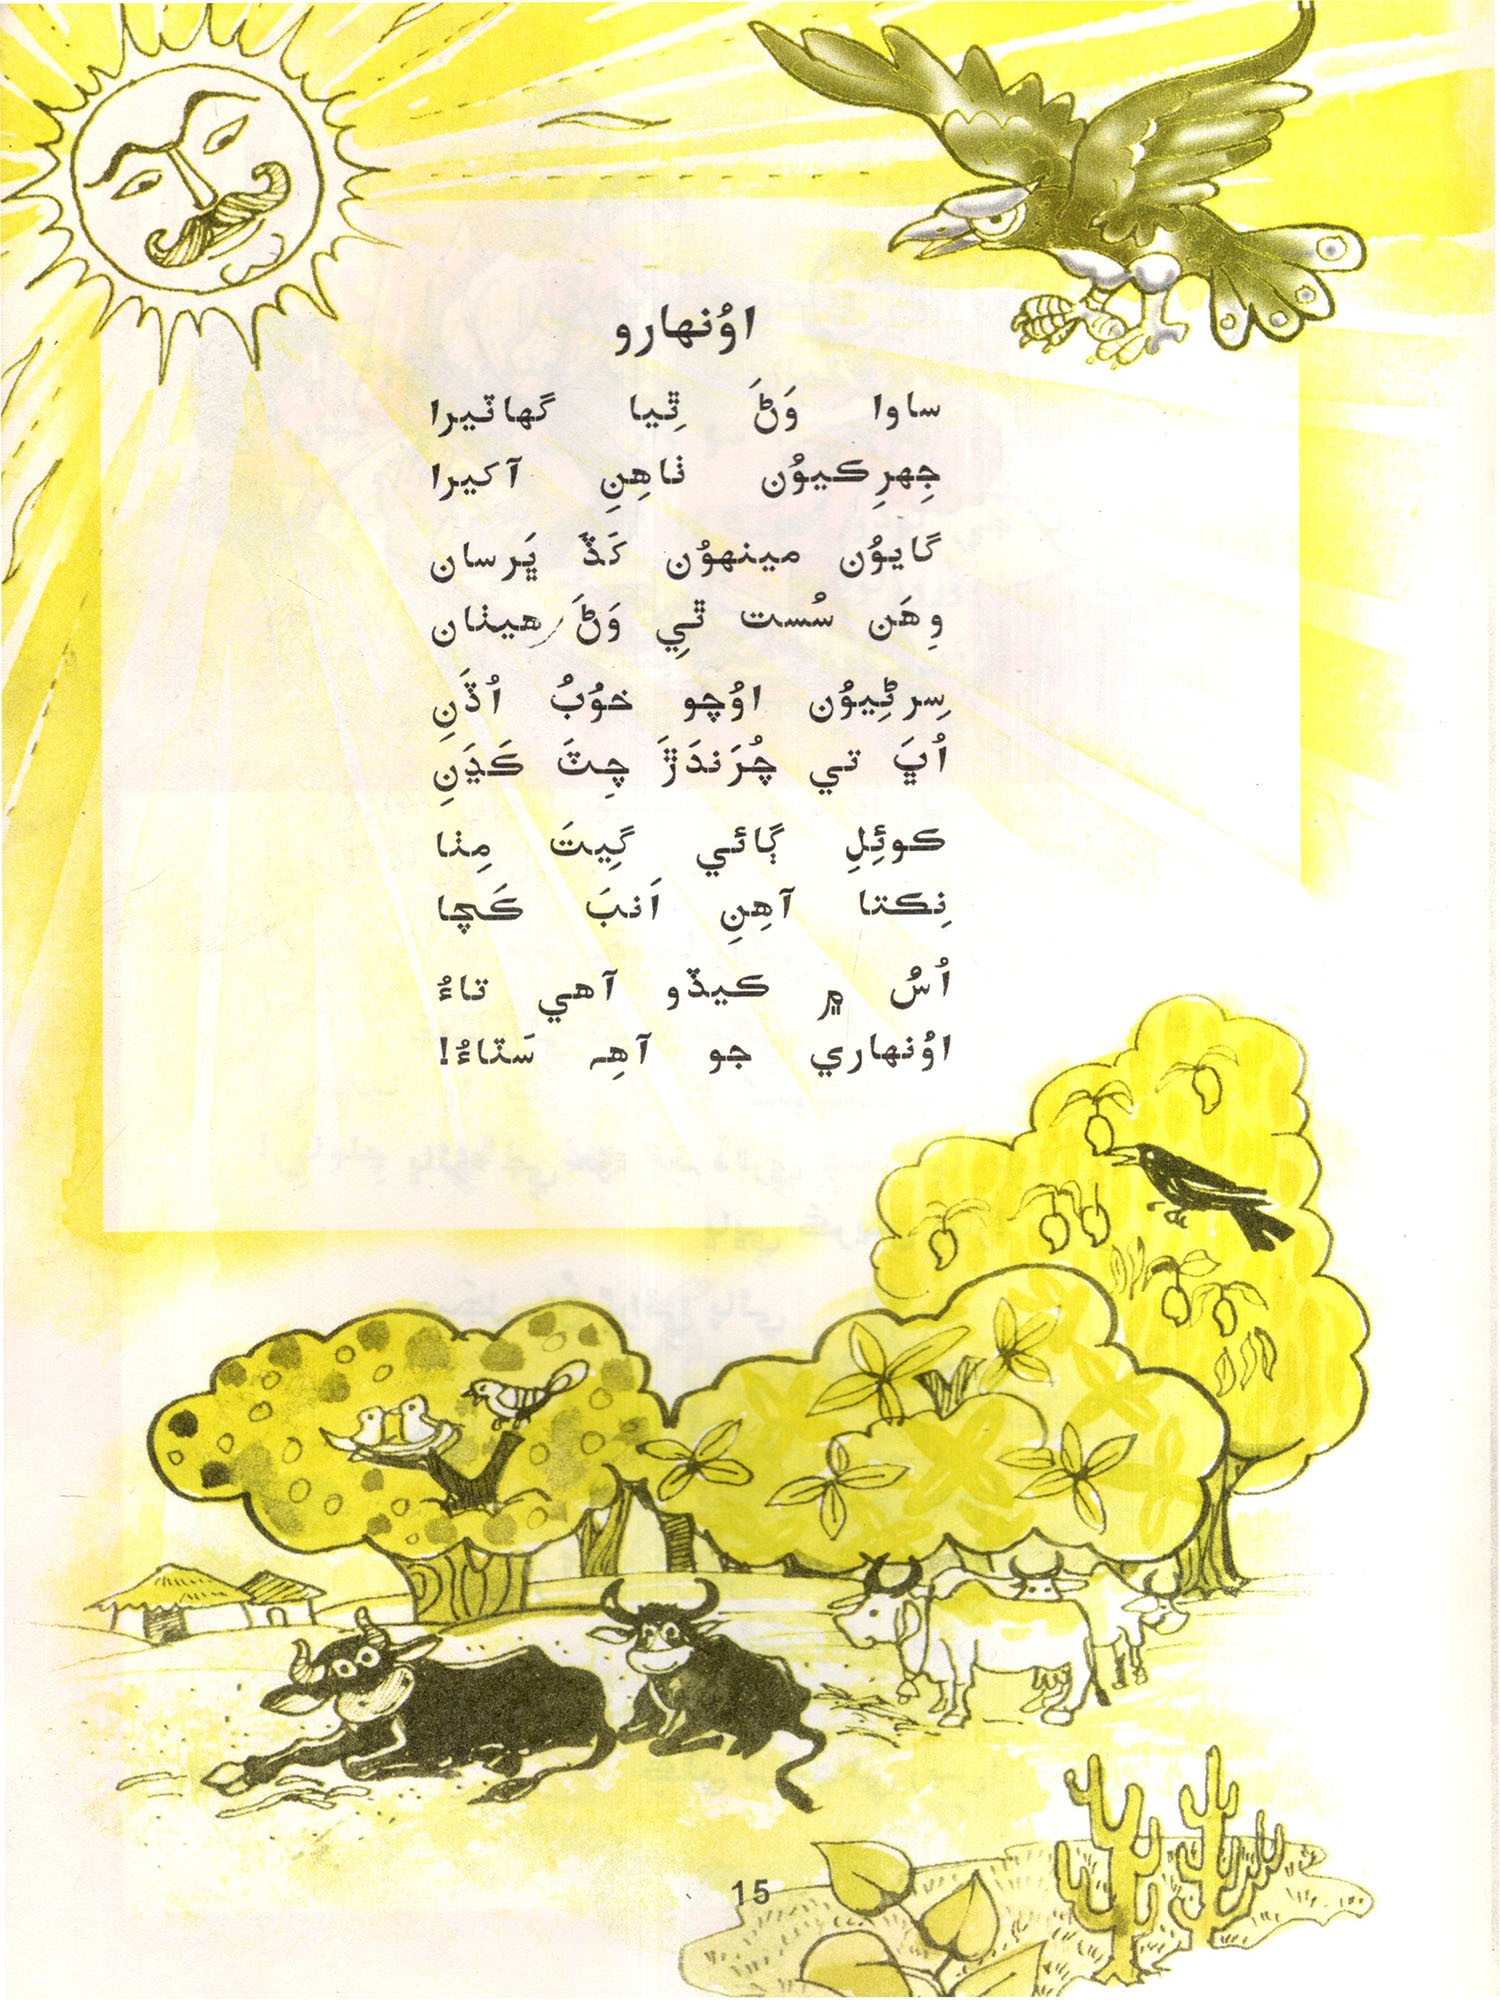 اوُنهارو
ساوا وَڻَ ٿِيا گھاٽيرا
جِهرِڪيوُن ٺاهِنِ آکيرا
گايوُن مينهوُن کَڏَ ڀَرسان
وِهَن سُست ٿي وَڻَ هيٺان
سِرڻِيوُن اوُچو خوُبُ اُڏَنِ
اُڀَ تي چُرَندَڙَ چِٽَ ڪَڍَنِ
ڪوئِلِ ڳائي گِيتَ مِٺا
نِڪتا آهِنِ اَنبَ ڪَچا
اُسُ ۾ ڪيڏو آهي تاءُ
اوُنهاري جو آهِہ سَٽاءُ!
15